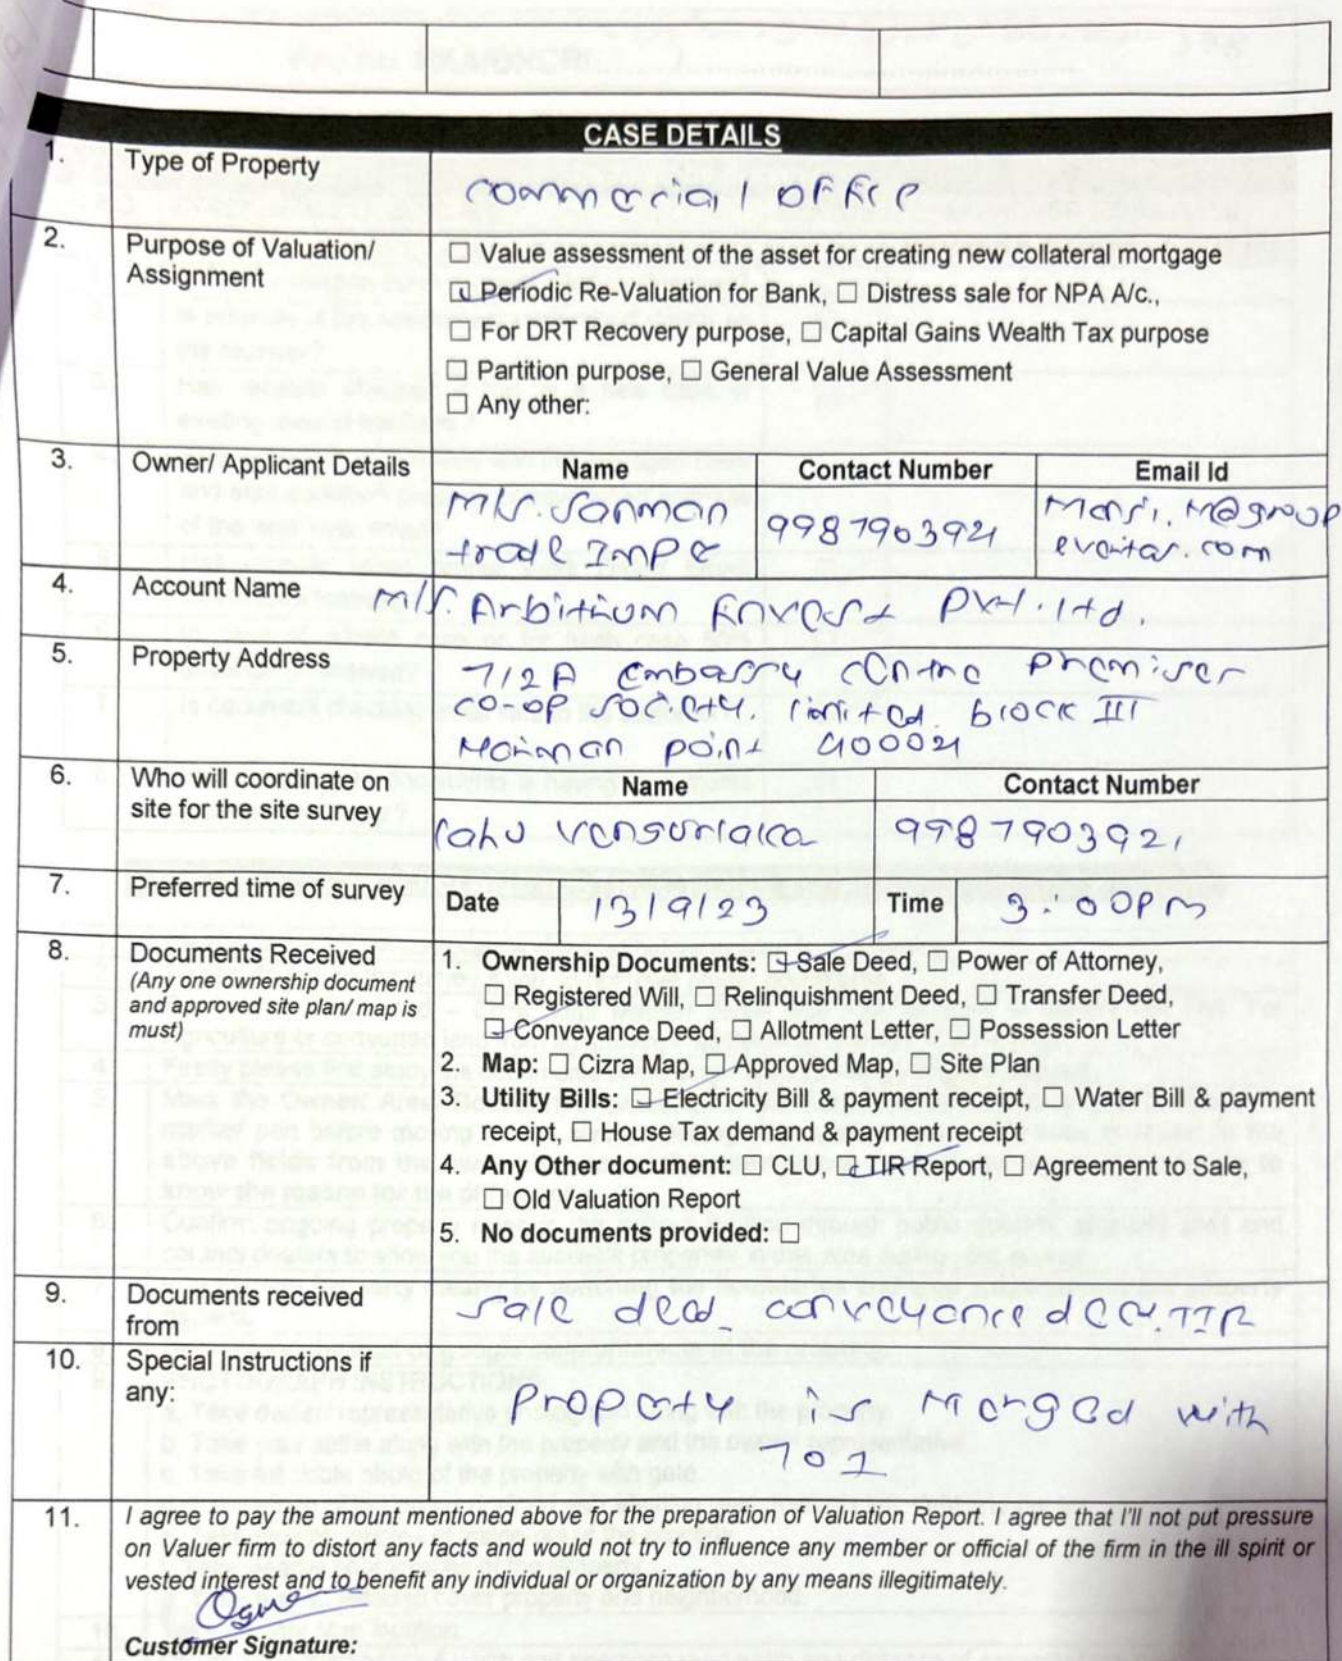 CASE DETAILS
1. Type of Property commercial office
2. Purpose of Valuation/ Assignment
☐ Value assessment of the asset for creating new collateral mortgage
☑ Periodic Re-Valuation for Bank, ☐ Distress sale for NPA A/c.,
☐ For DRT Recovery purpose, ☐ Capital Gains Wealth Tax purpose
☐ Partition purpose, ☐ General Value Assessment
☐ Any other:
3. Owner/ Applicant Details Name Contact Number Email Id
M/s. Sanman 9987903921 Mansi.m@group
trade Impex evaitas.com
4. Account Name M/s. Arbitium Invest Pvt. Ltd.
5. Property Address 712A Embassy Centre Premises
CO-OP Society. limited. block III
Nariman point 400021
6. Who will coordinate on Name Contact Number
site for the site survey 9987903921
7. Preferred time of survey Date 13/9/23 Time 3:00PM
8. Documents Received
(Any one ownership document
and approved site plan/ map is
must)
1. Ownership Documents: ☑ Sale Deed, ☐ Power of Attorney,
☐ Registered Will, ☐ Relinquishment Deed, ☐ Transfer Deed,
☑ Conveyance Deed, ☐ Allotment Letter, ☐ Possession Letter
2. Map: ☐ Cizra Map, ☐ Approved Map, ☐ Site Plan
3. Utility Bills: ☑ Electricity Bill & payment receipt, ☐ Water Bill & payment
receipt, ☐ House Tax demand & payment receipt
4. Any Other document: ☐ CLU, ☑ TIR Report, ☐ Agreement to Sale,
☐ Old Valuation Report
5. No documents provided: ☐
9. Documents received
from
Sale deed conveyance deed. TIR
10. Special Instructions if
any:
Property is Merged with
701
11. I agree to pay the amount mentioned above for the preparation of Valuation Report. I agree that I'll not put pressure
on Valuer firm to distort any facts and would not try to influence any member or official of the firm in the ill spirit or
vested interest and to benefit any individual or organization by any means illegitimately.
Customer Signature: